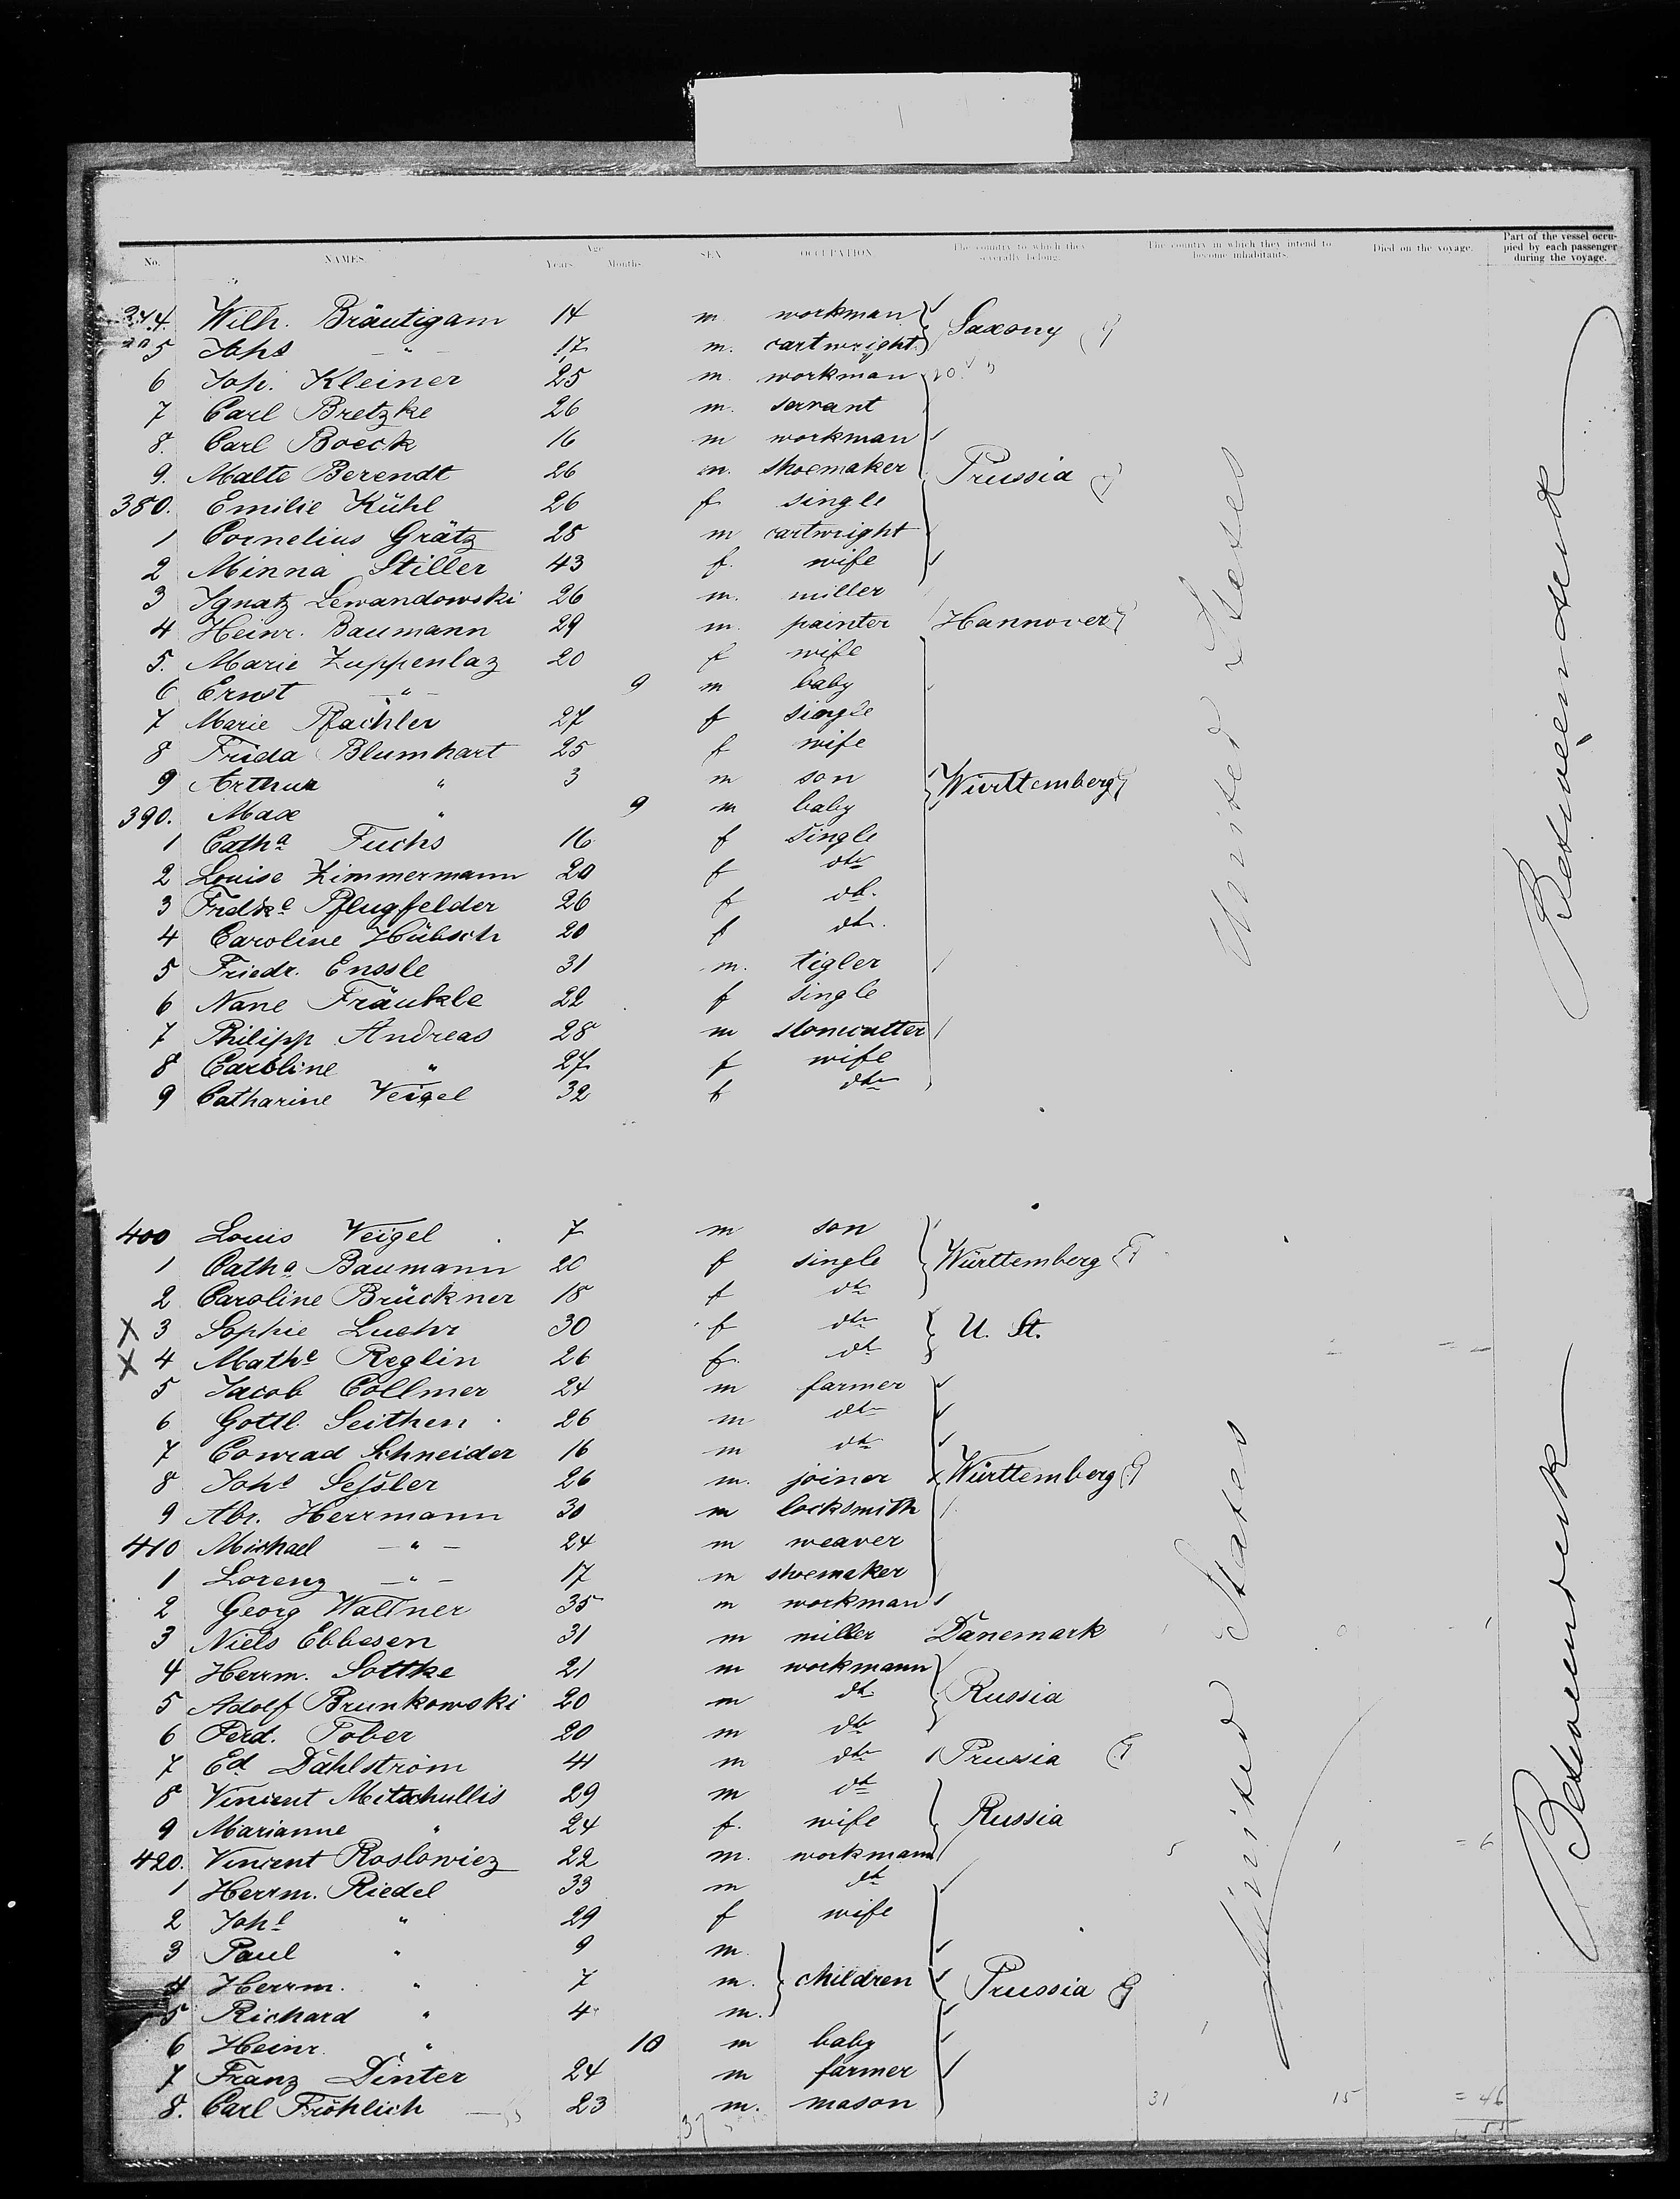 No. NAMES. Age Years. Months. SEX OCCUPATION The country to which they severally belong. The country in which they intend to become inhabitants. Died on the voyage. Part of the vessel occupied by each passenger during the voyage.
374. Wilh. Bräutigam 14 m. workman Saxony
5 Johs - " - 17 m. cartwright
6 Joh. Kleiner 25 m. workman
7 Carl Bretzke 26 m. servant
8. Carl Boeck 16 m workman
9. Malte Berendt 26 m. shoemaker Prussia
380. Emilie Kühl 26 f single
1 Cornelius Grätz 28 m cartwright
2 Minna Stiller 43 f. wife
3 Ignatz Lewandowski 26 m. miller
4 Heinr. Baumann 29 m. painter Hannover
5. Marie Zuppenlaz 20 f wife
6 Ernst - " - 9 m baby
7 Marie Pfachler 27 f single
8 Frida Blumhart 25 f wife
9 Arthur " 3 m son Württemberg
390. Max " 9 m baby
1 Catha Fuchs 16 f single
2 Louise Zimmermann 20 f dto
3 Fredke Pflugfelder 26 f dt.
4 Caroline Hübsch 20 f dto.
5 Friedr. Enssle 31 m. tigler
6 Nane Fräukle 22 f single
7 Philipp Andreas 28 m stonecutter
8 Caroline " 27 f wife
9 Catharine Veigel 32 f dto
United States
Between deck
400 Louis Veigel 7 m son
1 Catha Baumann 20 f single Württemberg
2 Caroline Brückner 18 f dto
X 3 Sophie Luehr 30 f dto U. St.
X 4 Mathe Reglin 26 f. dt
5 Jacob Collmer 24 m farmer
6 Gottl. Seithen 26 m dto
7 Conrad Schneider 16 m dto
8 Johs Seßler 26 m. joiner Württemberg
9 Abr. Herrmann 30 m locksmith
410 Michael - " - 24 m weaver
1 Lorenz - " - 17 m shoemaker
2 Georg Waltner 35 m workman
3 Niels Ebbesen 31 m miller Dänemark
4 Herrm. Sottke 21 m workmann
5 Adolf Brunkowski 20 m dto Russia
6 Ferd. Tober 20 m dto
7 Ed. Dahlström 41 m dto Prussia
8 Vincent Mitschullis 29 m dt
9 Marianne " 24 f. wife Russia
420. Vincent Roslowicz 22 m. workmann
1 Herrm. Riedel 33 m dt
2 Johe " 29 f wife
3 Paul " 9 m.
4 Herrm. " 7 m. children Prussia
5 Richard " 4 m.
6 Heinr. " 10 m baby
7 Franz Dinter 24 m farmer
8. Carl Fröhlich 23 m. mason 31 15 = 46
United States
Between deck